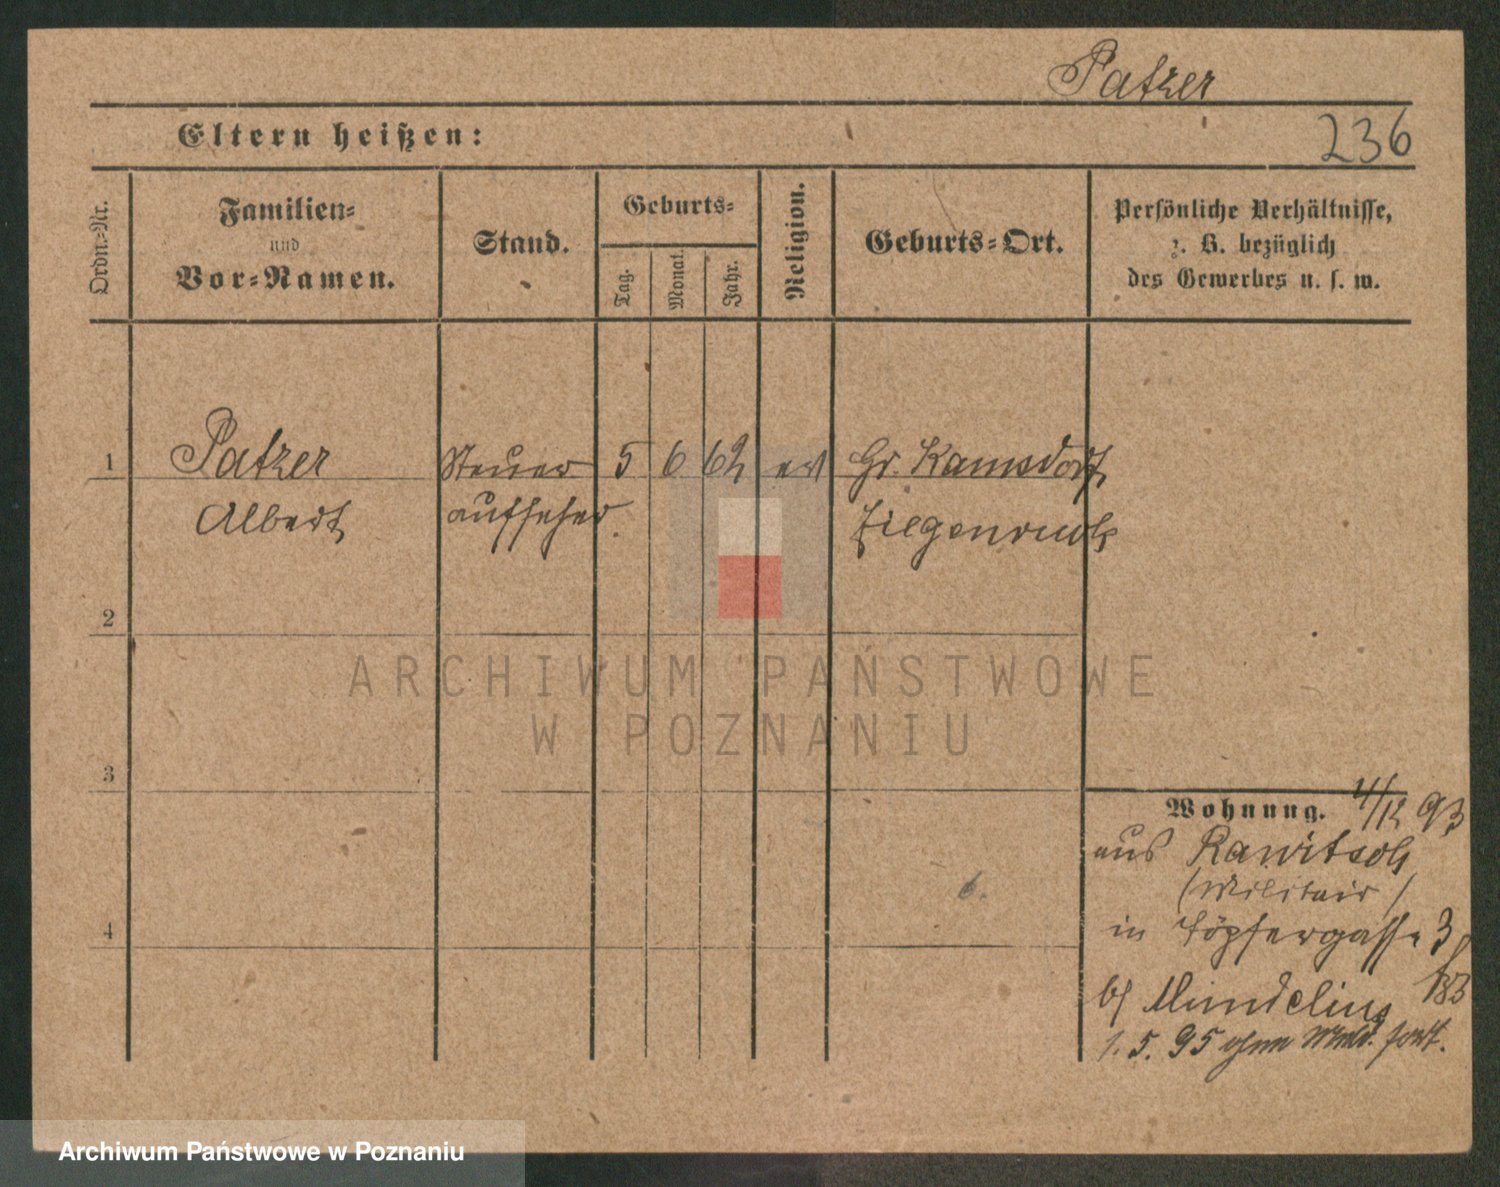 Patzer
Eltern heißen:
236
Ordn.-Nr.
Familien-
und
Vor-Namen.
Stand.
Geburts-
Tag.
Monat.
Jahr.
Religion.
Geburts-Ort.
Persönliche Verhältnisse,
z. B. bezüglich
des Gewerbes u. s. w.
1
Patzer
Steuer
5
6
62
ev
Gr. Kamsdorf
Albert
aufseher.
Ziegenrück
2
ARCHIWUM PAŃSTWOWE
W POZNANIU
3
Wohnung.
4/12 93
aus Rawitsch
(Militair)
in Töpfergasse 3
6.
4
b/ Mindelius
1. 5. 95 ohne Meld. fort.
Archiwum Państwowe w Poznaniu